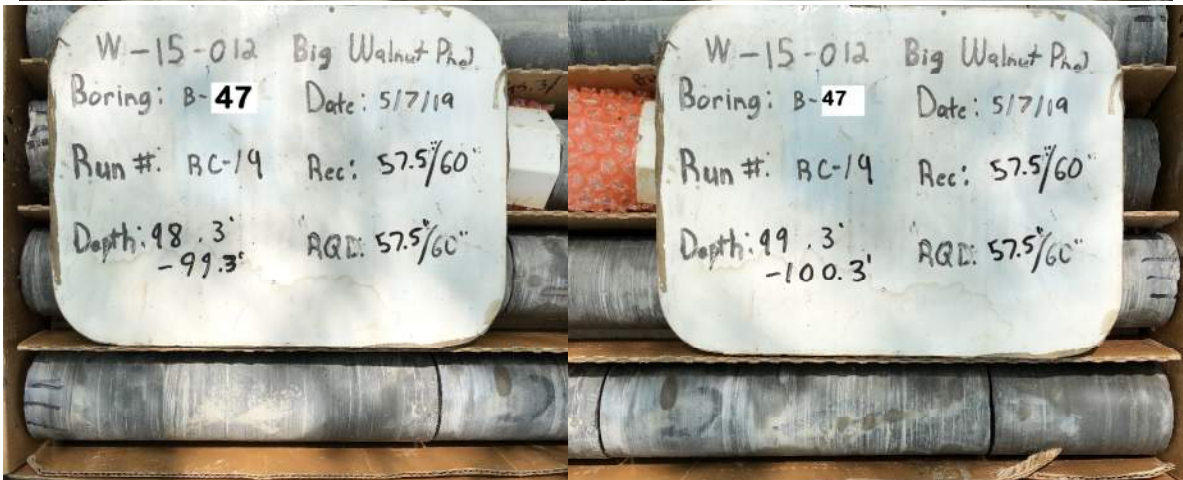 W-15-012 Big Walnut Ph2
Boring: B-47 Date: 5/7/19
Run #: RC-19 Rec: 57.5"/60"
Depth: 98.3' RQD: 57.5"/60"
-99.3'
W-15-012 Big Walnut Ph2
Boring: B-47 Date: 5/7/19
Run #: RC-19 Rec: 57.5"/60"
Depth: 99.3' RQD: 57.5"/60"
-100.3'